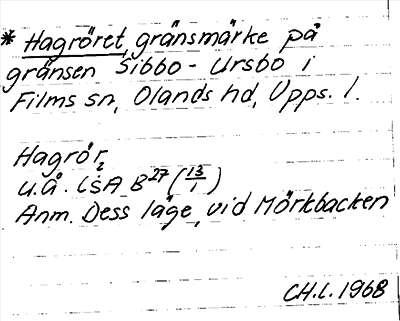 * Hagröret, gränsmärke på
gränsen Sibbo - Ursbo i
Films sn, Olands hd, Upps. l.
Hagrör,
u.å. LSA B27 (13/1)
Anm. Dess läge, vid Mörtbacken
CH.L. 1968